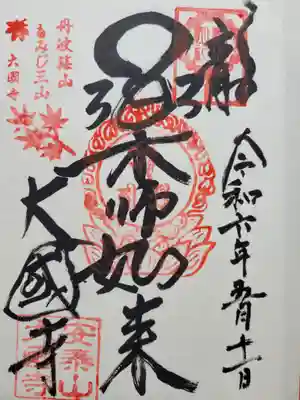 令和六年五月十一日
薬師如来
大國寺
丹波篠山
もみじ三山
大國寺
安泰山
大國寺